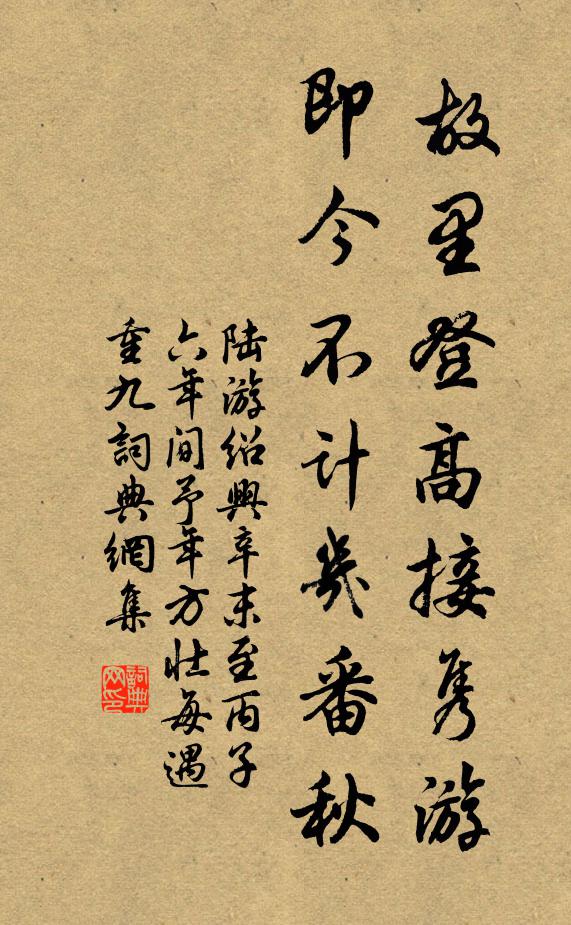 故里登高接隽游
即今不计幾番秋
陆游绍興辛未至丙子
六年间予年方壮每遇
重九詞典網集
詞典网印